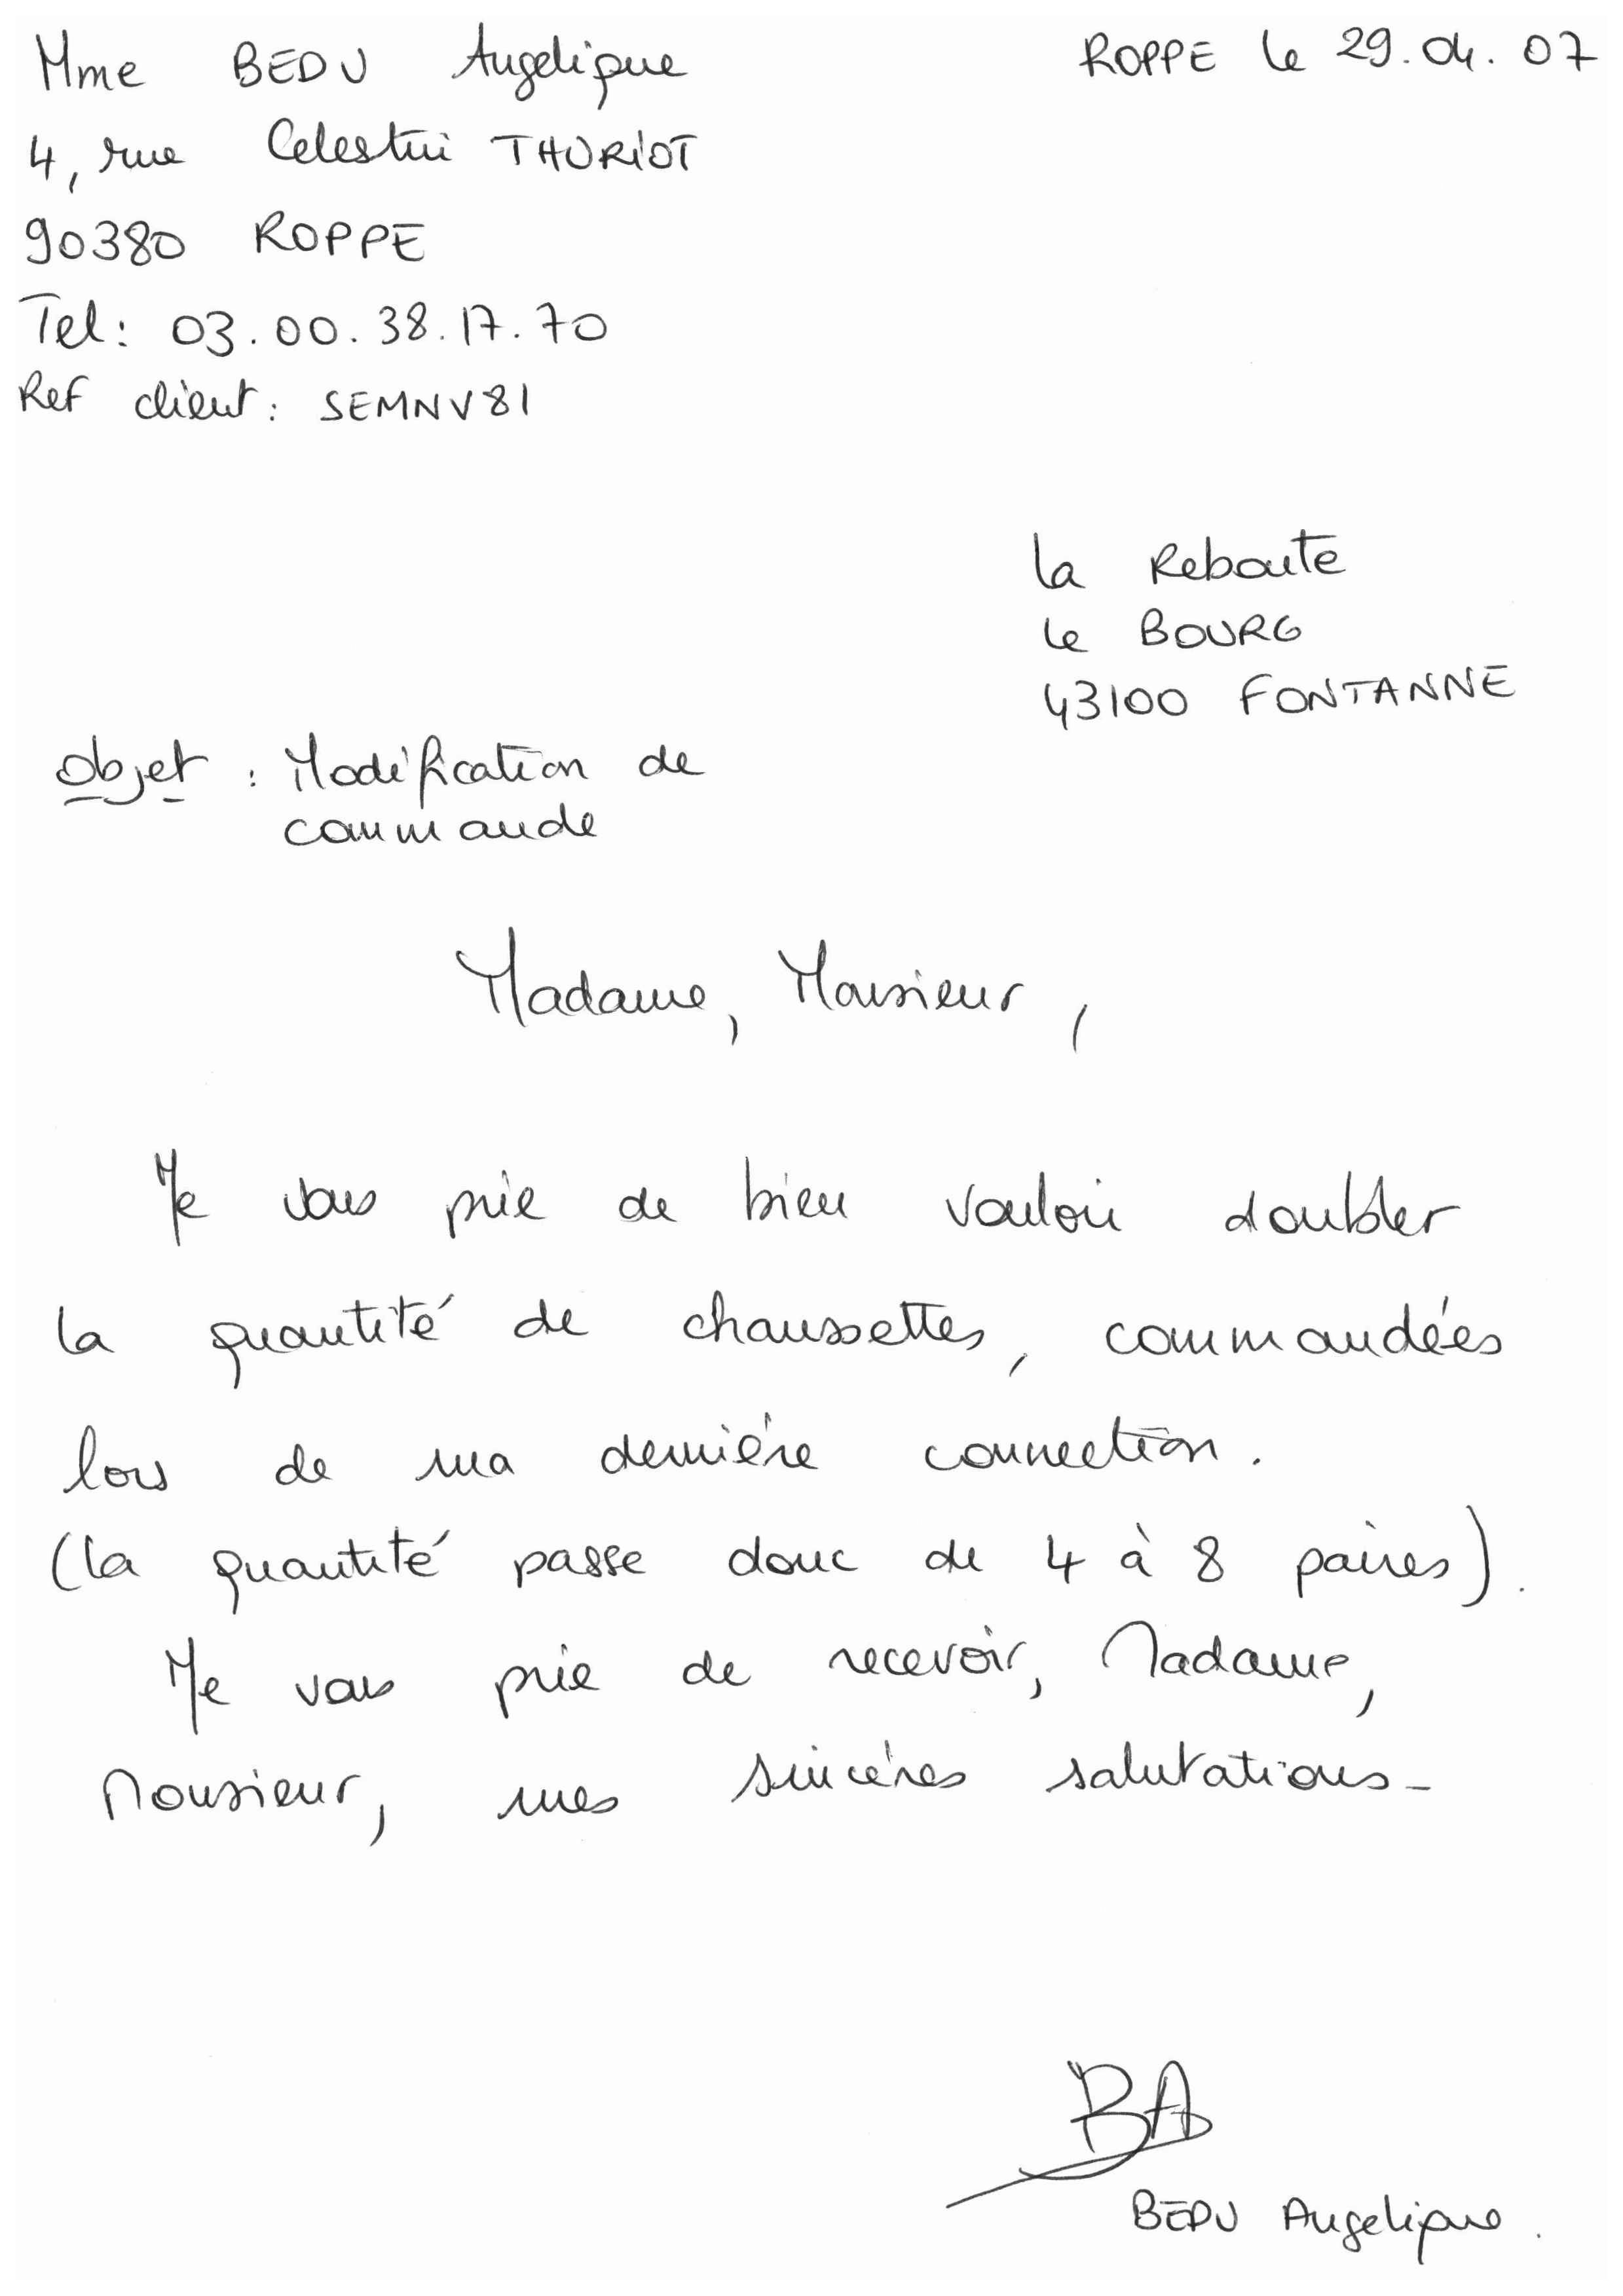 Mme BEDU Angelique
ROPPE le 29.04.07
4, rue Celestin THURIOT
90380 ROPPE
Tel: 03.00.38.17.70
Ref client: SEMNV81
la Reboute
le BOURG
43100 FONTANNE
Objet : Modification de
commande
Madame, Monsieur,
Je vous prie de bien vouloir doubler
la quantité de chaussettes, commandées
lors de ma dernière connection.
(la quantité passe donc de 4 à 8 paires).
Je vous prie de recevoir, Madame,
Monsieur, mes sincères salutations-
BA
BEDU Angelique.